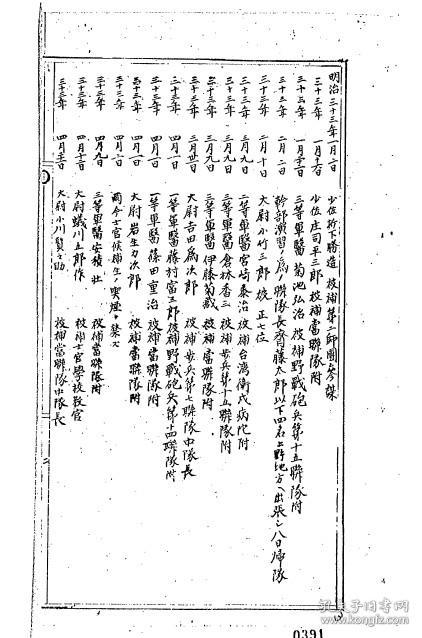 明治三十三年 一月二日 少佐 折下勝造 被補第二師團參謀
三十三年 一月十六日 少佐 庄司平三郎 被補當聯隊附
三十三年 一月 三等軍醫 菊池弘治 被補野戰砲兵第十五聯隊附
三十三年 二月二日 幹部演習ノ爲メ聯隊長齊藤太郎以下四名上野地方ヘ出張シ八日歸隊
三十三年 二月十日 大尉 小竹三郎 被 正七位
三十三年 三月九日 二等軍醫 宮崎泰治 被補台湾衛戍病院附
三十三年 三月九日 三等軍醫 倉林香三 被補步兵第十五聯隊附
三十三年 三月九日 三等軍醫 伊藤菊蔵 被補當聯隊附
三十三年 三月 大尉 吉田爲次郎 被補步兵第七聯隊中隊長
三十三年 四月一日 一等軍醫 藤村富三郎 被補野戰砲兵第十四聯隊附
三十三年 四月一日 一等軍醫 篠田重治 被補當聯隊附
三十三年 四月一日 大尉 岩生力次郎 被補當聯隊附
三十三年 四月 士官候補生ノ喫煙ヲ禁ス
三十三年 四月九日 三等軍醫 安積 被補當聯隊附
三十三年 四月 大尉 蟻川五郎作 被補士官學校教官
三十三年 四月 大尉 小川賢之助 被補當聯隊中隊長
二
0391
孔夫子旧书网
www.kongfz.com